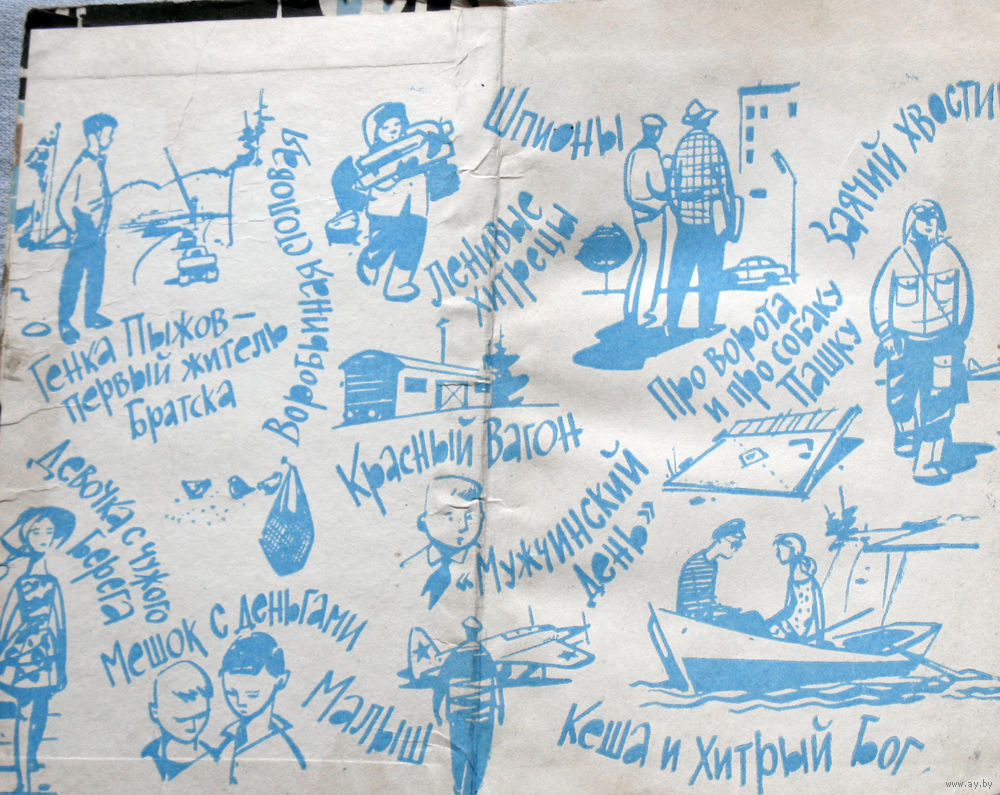 Генка Пыжов –
первый житель
Братска
Воробьиная столовая
Ленивые
хитрецы
Шпионы
Заячий хвости
Про ворота
и про собаку
Пашку
Красный вагон
Девочка с чужого
берега
Мешок с деньгами
Малыш
"Мужчинский
день"
Кеша и хитрый бог.
www.ay.by